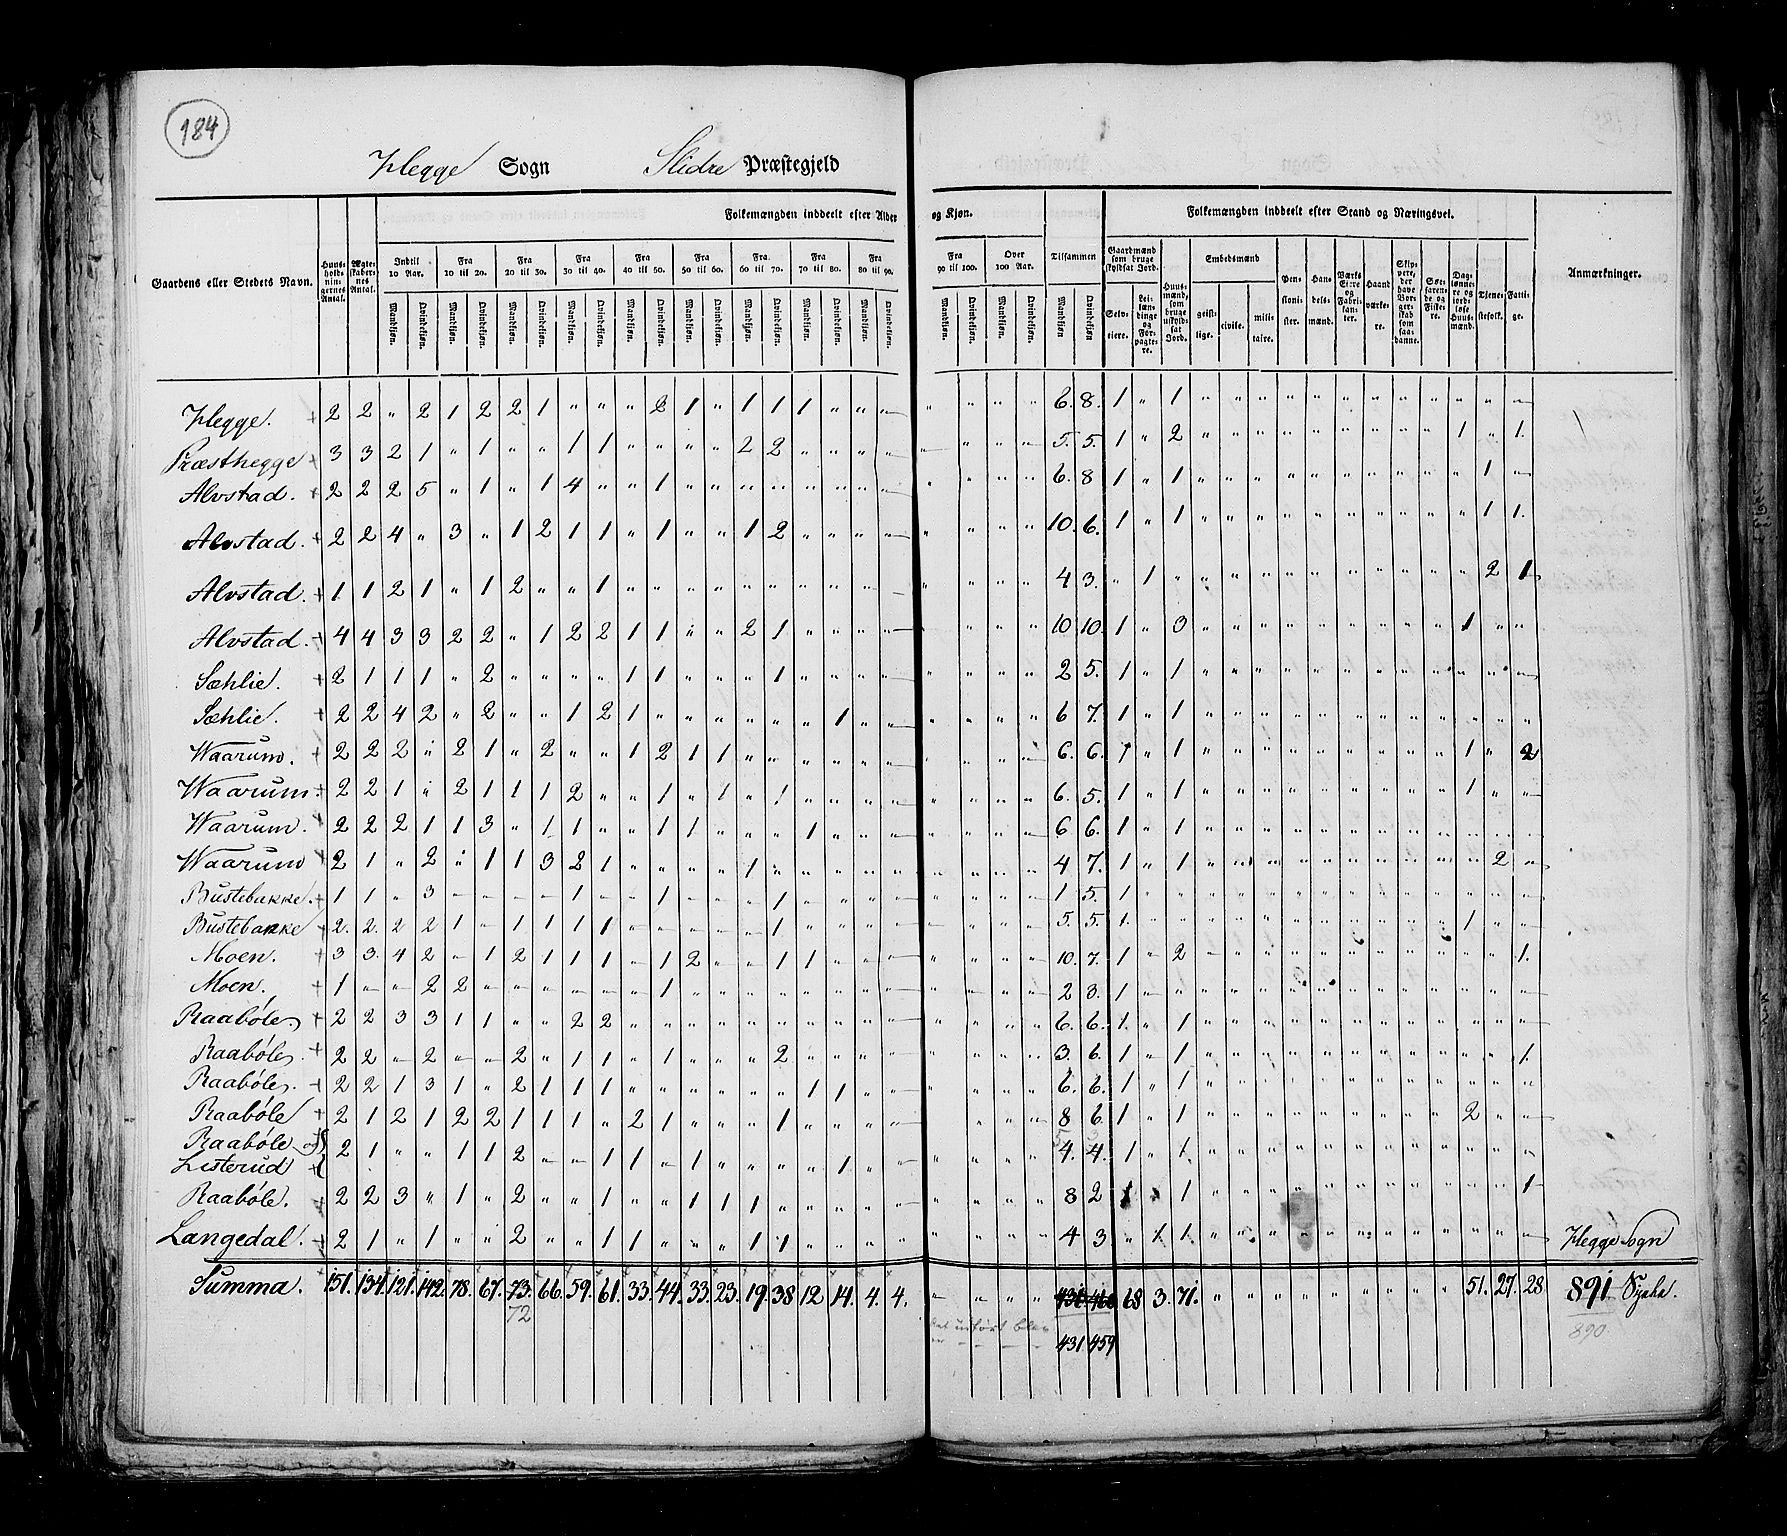 184
Hegge Sogn Slidre Præstegjeld
Folkemængden inddeelt efter Alder og Kjøn. Folkemængden inddeelt efter Stand og Næringsvei.
Gaardens eller Stedets Navn. Huusholdningernes Antal. Ægteskabernes Antal. Indtil 10 Aar. Fra 10 til 20. Fra 20 til 30. Fra 30 til 40. Fra 40 til 50. Fra 50 til 60. Fra 60 til 70. Fra 70 til 80. Fra 80 til 90. Fra 90 til 100. Over 100 Aar. Tilsammen Gaardmænd som bruge skyldsat Jord. Huusmænd, som bruge uskyldsat Jord. Embedsmænd Pensionister. Handelsmænd. Værks Eiere og Fabrikanter. Haandværkere. Skippere, der have Borgerskab som saadanne. Søefarende og Fiskere. Daglønnere og jordløse Huusmænd. Tjenestefolk. Fattige. Anmærkninger.
Mandkjøn. Qvindekjøn. Mandkjøn. Qvindekjøn. Mandkjøn. Qvindekjøn. Mandkjøn. Qvindekjøn. Mandkjøn. Qvindekjøn. Mandkjøn. Qvindekjøn. Mandkjøn. Qvindekjøn. Mandkjøn. Qvindekjøn. Mandkjøn. Qvindekjøn. Mandkjøn. Qvindekjøn. Mandkjøn. Qvindekjøn. Mandkjøn Qvindekjøn. Selveiere. Leilændinge og Forpagtere. geistlige. civile. militaire.
Hegge. + 2 2 " 2 1 2 2 1 " " " 2 1 " 1 1 1 " " " " " " " 6. 8. 1 " 1 " " " " " " " " " " " "
Præsthegge + 3 3 2 1 " 1 " " 1 1 " " " " 2 2 " " " " " " " 5. 5. 1 " 2 " " " " " " " " " 1 " 1.
Alvstad. + 2 2 2 5 " 1 " 1 4 " " 1 " " " " " " " " " " " " 6. 8 1 " 1 " " " " " " " " " " 1 "
Alvstad. + 2 2 4 " 3 " 1 2 1 1 " 1 " " 1 2 " " " " " " " " 10. 6. 1 " 1 " " " " " " " " " " 1 1.
Alvstad. + 1 1 2 1 " 1 2 " " 1 " " " " " " " " " " " " " " 4 3. " 1 " " " " " " " " " " " 2 1
Alvstad. + 4 4 3 3 2 2 " 1 2 2 1 1 " " 2 1 " " " " " " " " 10 10. 1 " 3 " " " " " " " " " 1 " "
Sæhlie. + 2 1 1 1 " 2 " " " " 1 1 " " " 1 " " " " " " " " 2 5. 1 " 1 " " " " " " " " " " " "
Sæhlie. + 2 2 4 2 " 2 " " 1 2 1 " " " " " " 1 " " " " " " 6 7. 1 " 1 " " " " " " " " " " " "
Waarum. + 2 2 2 " 2 1 " 2 " " 1 2 1 1 " " " " " " " " " " 6. 6. 1 " 1 " " " " " " " " " 1 " 2
Waarum. 2 2 1 " 2 1 1 1 2 " " 1 " 1 " 1 " " " " " " " " 6. 5. 1 " 1 " " " " " " " " " 1 " "
Waarum. + 2 2 2 1 1 3 " 1 1 " " 1 1 " " " 1 " " " " " " " 6 6. 1 " 1 " " " " " " " " " " " "
Waarum + 2 1 " 2 " 1 1 3 2 1 " " " " 1 " " " " " " " " " 4 7. 1 " 1 " " " " " " " " " " 2 "
Bustebakke. + 1 1 " 3 " " " " 1 " " 1 " " " 1 " " " " " " " " 1 5. 1 " " " " " " " " " " " " " "
Bustebakke + 2. 2. 2 2 1 " 1 1 1 1 " " " " " 1 " " " " " " " " 5. 5. 1. " " " " " " " " " " " 1 " "
Moen. + 3 3. 4 2 " 1 2 1 1 1 " 1 2 " " 1 1 " " " " " " " 10. 7. 1 " 2 " " " " " " " " " " " 1.
Moen. + 1 " " 2 2 " " " " " " 1 " " " " " " " " " " " " 2 3. 1 " " " " " " " " " " " " " "
Raabøle. + 2 2 3 3 1 1 " " 2 2 " " " " " " " " " " " " " " 6. 6. 1. " 1 " " " " " " " " " " " "
Raabøle. + 2 2 " 2 " " 2 " 1 1 " 1 " " " 2 " " " " " " " " 3. 6. 1 " 1 " " " " " " " " " " " 1.
Raabøle. + 2 2 1 3 1 " 2 1 1 1 " " " " " " 1 1 " " " " " " 6. 6. 1 " 1 " " " " " " " " " " " "
Raabøle + 2 1 2 1 2 2 1 1 1 " 2 1 " " " 1 " " " " " " " " 8 6. 1 " 1 " " " " " " " " " 2 " "
Raabøle og
Listerud + 2 1 " " 1 1 2 " " 1 1 " 1 " " " " 1 " " " " " " 4. 4. 1 " 1. " " " " " " " " " " " "
Raabøle. + 2 2 3 " 1 " 2 " " 1 " " 1 1 1 " " " " " " " " " 8 2 1 " 1 " " " " " " " " " " " 1
Langedal. + 2 1 " 1 " " 2 " " 1 1 " " " 1 1 " " " " " " " " 4 3 " 1 1 " " " " " " " " " " " " Hegge Sogn
Summa. 151. 134. 121. 142. 78. 67. 73. 66. 59. 61. 33. 44. 33. 23. 19. 38 12 14. 4. 4. " " " " 431 460 68 3. 71. " " " " " " " " " 51. 27. 28 891 Sjæle.
72 431 459 890